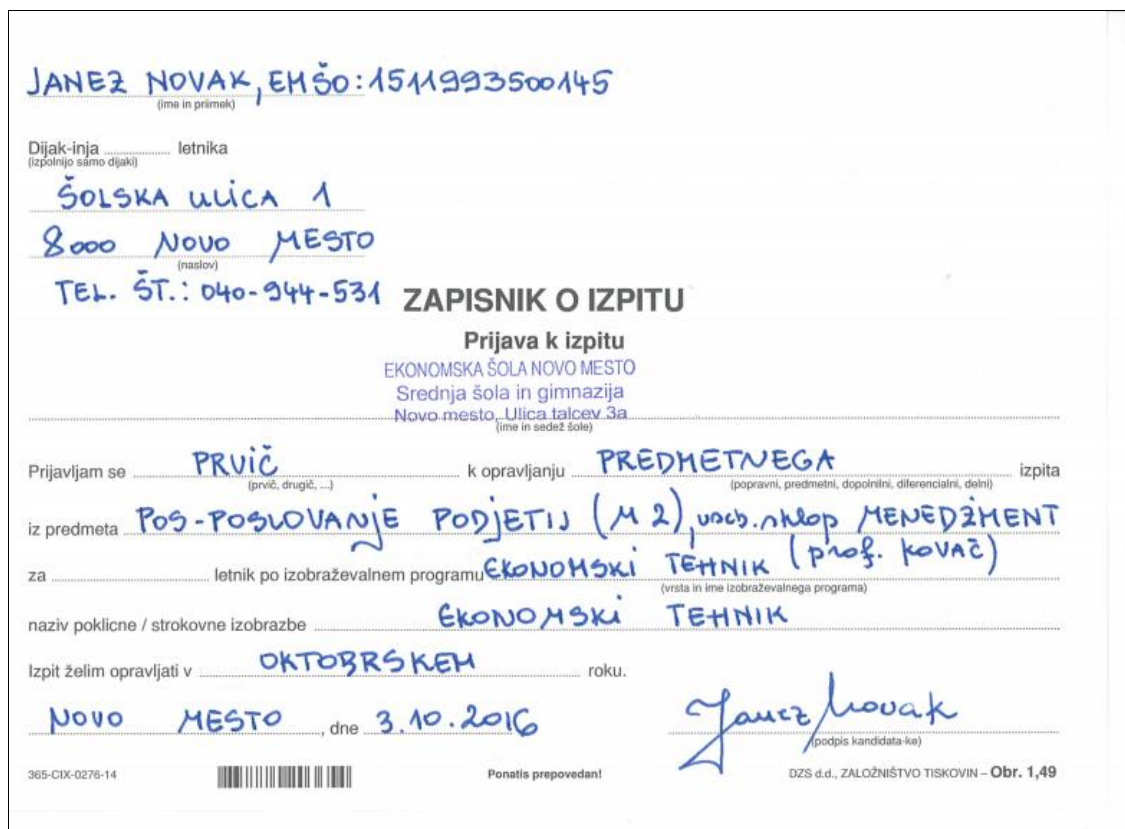 JANEZ NOVAK, EMŠO: 1511993500145
(ime in priimek)
Dijak-inja ............ letnika
(izpolnijo samo dijaki)
ŠOLSKA ULICA 1
8000 NOVO MESTO
(naslov)
TEL. ŠT.: 040-944-531
ZAPISNIK O IZPITU
Prijava k izpitu
EKONOMSKA ŠOLA NOVO MESTO
Srednja šola in gimnazija
Novo mesto, Ulica talcev 3a
(ime in sedež šole)
Prijavljam se PRVIČ k opravljanju PREDMETNEGA izpita
(prvič, drugič, ...) (popravni, predmetni, dopolnilni, diferencialni, delni)
iz predmeta POS-POSLOVANJE PODJETIJ (M 2), vseb. sklop MENEDŽMENT
za ............ letnik po izobraževalnem programu EKONOMSKI TEHNIK (prof. KOVAČ)
(vrsta in ime izobraževalnega programa)
naziv poklicne / strokovne izobrazbe EKONOMSKI TEHNIK
Izpit želim opravljati v OKTOBRSKEM roku.
NOVO MESTO, dne 3.10.2016 Janez Novak
(podpis kandidata-ke)
365-CIX-0276-14 Ponatis prepovedan! DZS d.d., ZALOŽNIŠTVO TISKOVIN – Obr. 1,49